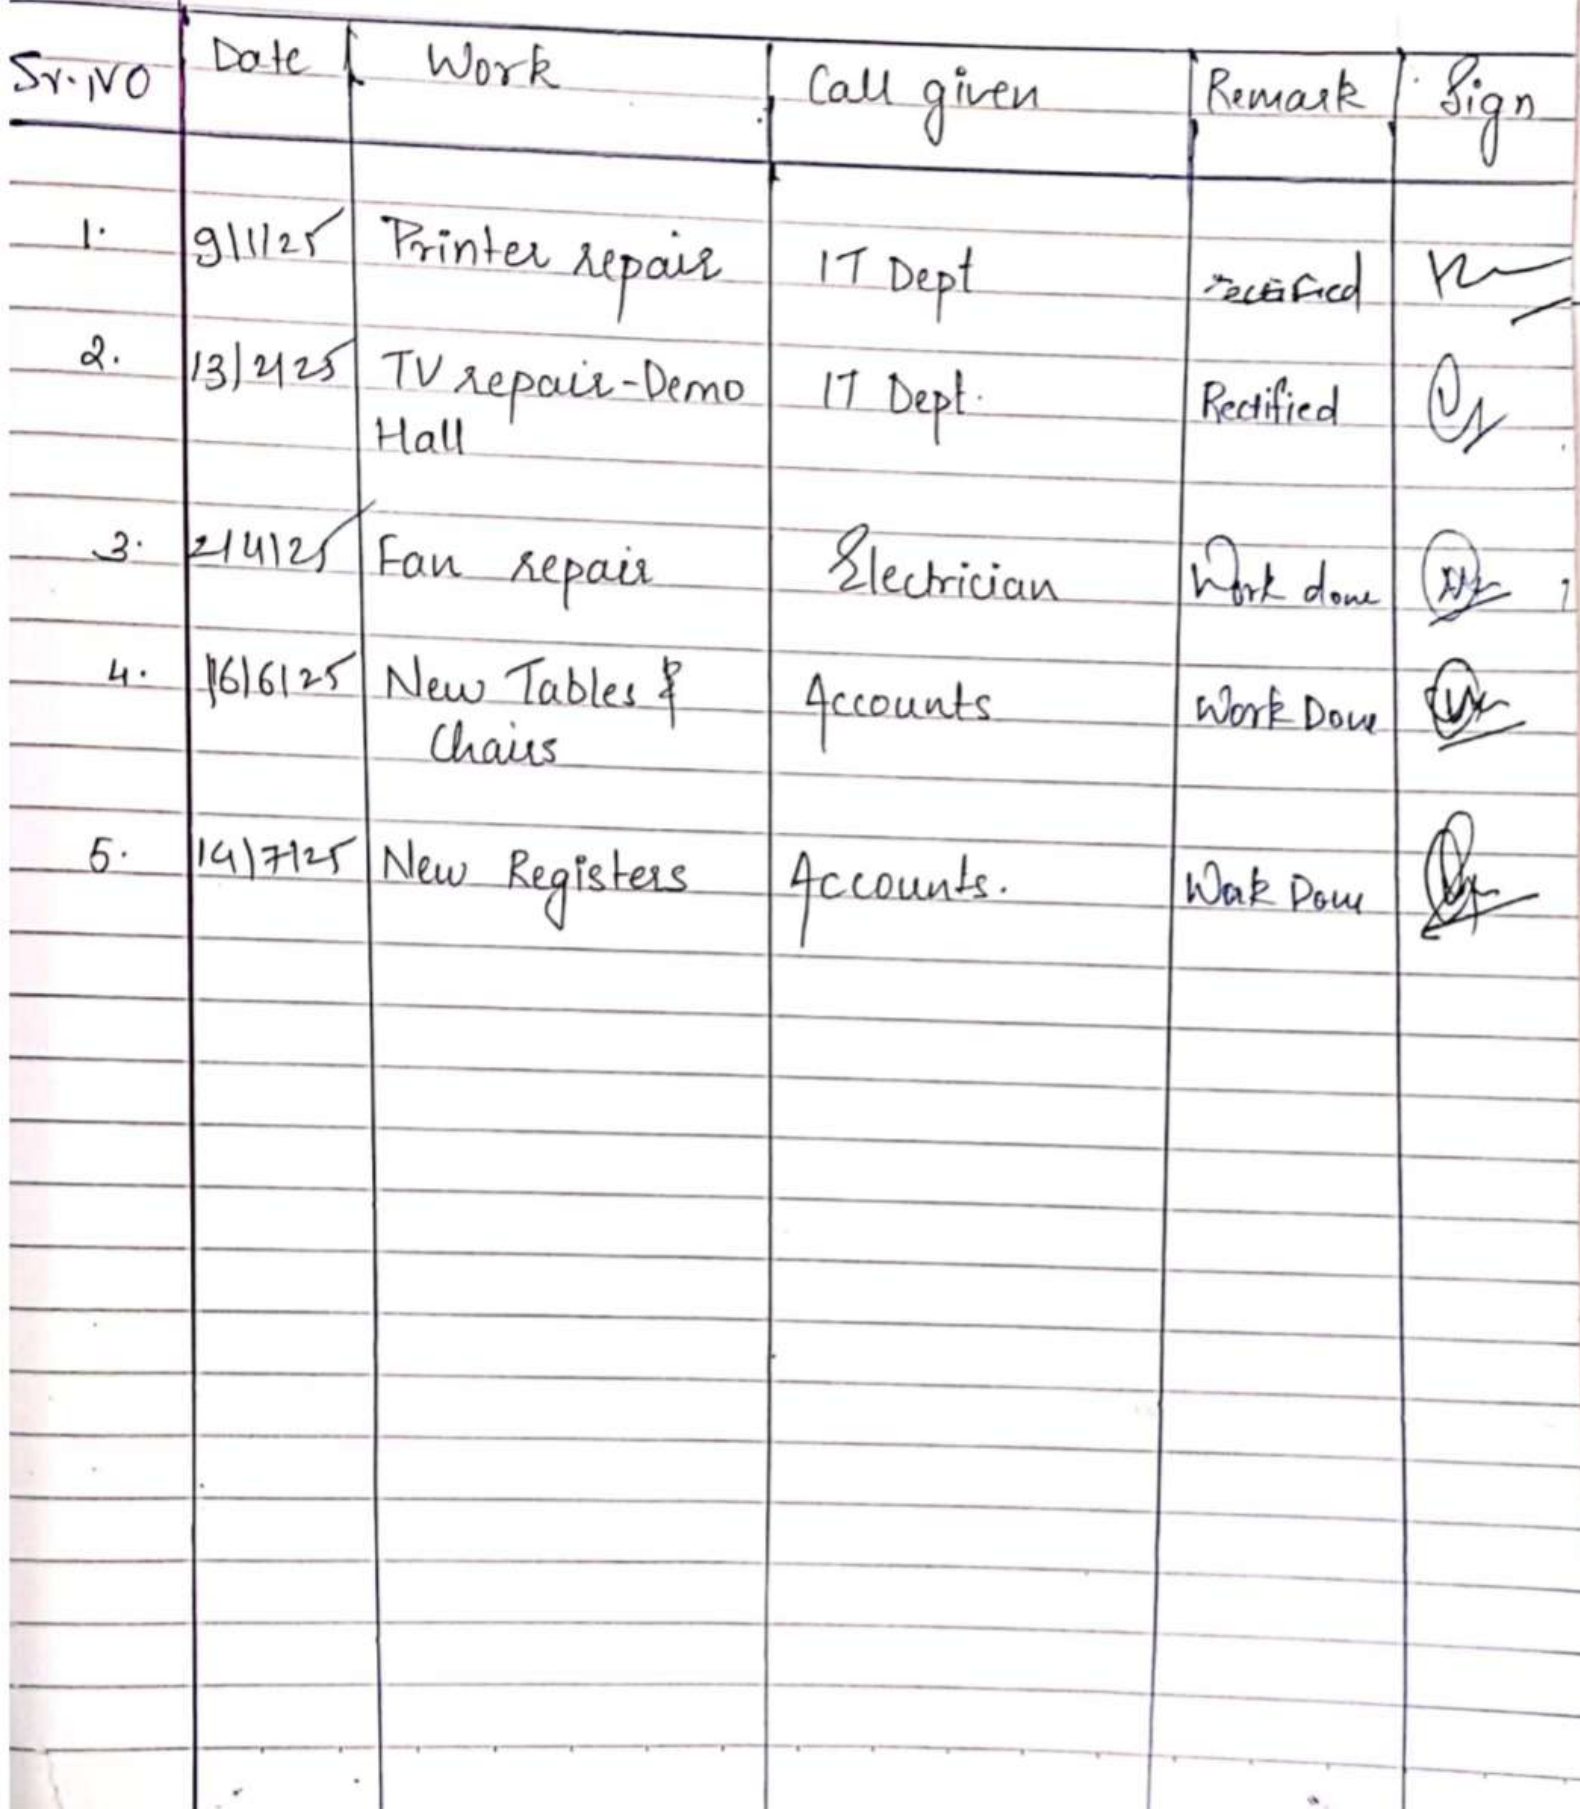 Sr.No Date Work Call given Remark Sign
1. 9/1/25 Printer repair IT Dept rectified
2. 13/2/25 TV repair-Demo IT Dept. Rectified
Hall
3. 2/4/25 Fan repair Electrician Work done
4. 16/6/25 New Tables & Accounts Work Done
Chairs
5. 14/7/25 New Registers Accounts. Work Done